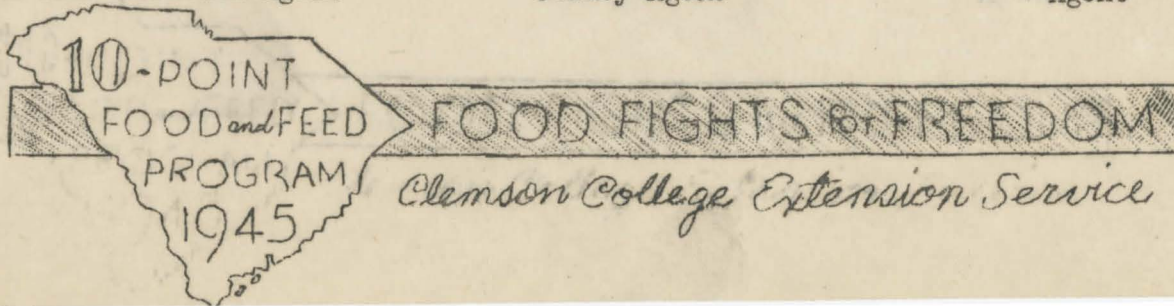 Agent
10-POINT
FOOD and FEED
PROGRAM
1945
FOOD FIGHTS for FREEDOM
Clemson College Extension Service